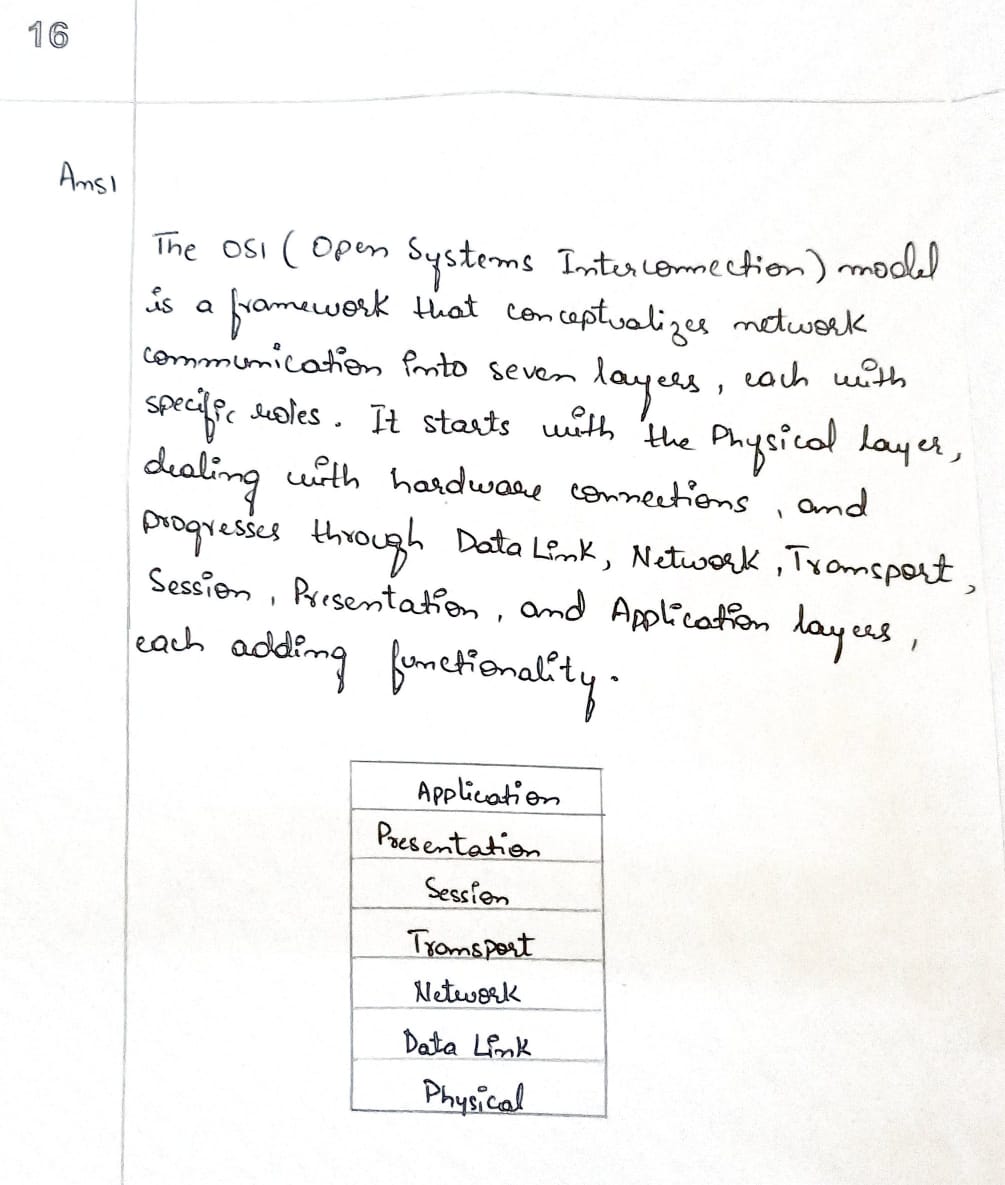 16
Ans1
The OSI (Open Systems Interconnection) model
is a framework that conceptualizes network
communication into seven layers, each with
specific roles. It starts with the Physical layer,
dealing with hardware connections, and
progresses through Data Link, Network, Transport,
Session, Presentation, and Application layers,
each adding functionality.
Application
Presentation
Session
Transport
Network
Data Link
Physical